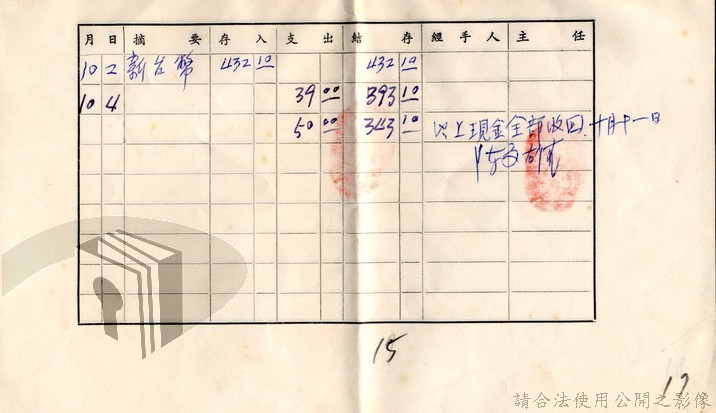 月 日 摘 要 存 入 支 出 結 存 經 手 人 主 任
10 2 新台幣 432 10 432 10
10 4 39 00 393 10
50 00 343 10 以上現金全部收回.十月十一日
15
17
請合法使用公開之影像